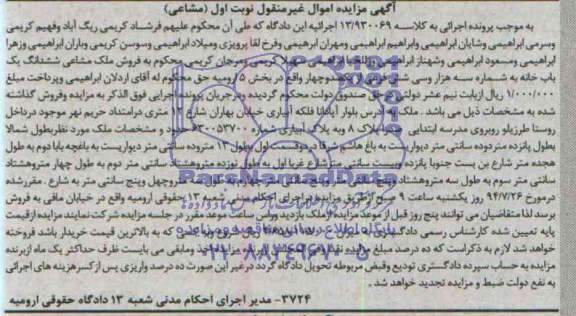 آگهی مزایده اموال غیرمنقول نوبت اول (مشاعی)
به موجب پرونده اجرائی به کلاسه ۱۳/۹۳۰۰۶۹ اجرائیه این دادگاه که طی آن محکوم علیهم فرشاد کریمی ریگ آباد وفهیم کریمی
وسرمی ابراهیمی وشایان ابراهیمی وابراهیم ابراهیمی ومهران ابراهیمی وفرخ لقا پرویزی ومیلاد ابراهیمی وسوسن کریمی وباران ابراهیمی وزهرا
ابراهیمی ومسعود ابراهیمی وشهناز ابراهیمی کریمی مرجان کریمی محکوم به فروش ملک مشاعی ششدانگ یک
باب خانه به شماره سه هزار وسی شش فرعی از یکصدوچهار واقع در بخش ۵ ارومیه حق محکوم له آقای اردلان ابراهیمی وپرداخت مبلغ
۱/۰۰۰/۰۰۰ ریال ازبابت نیم عشر دولتی در حق صندوق دولت محکوم گردیده ودرجریان پرونده اجرایی فوق الذکر به مزایده وفروش گذاشته
شده به مشخصات ذیل می باشد . ملک به آدرس بلوار آیادانا فلکه آبیاری خیابان بهاران شارع ۱۲ متری درامتداد حریم نهر موجود درداخل
روستا طرزیلو روبروی مدرسه ابتدایی پلاک ۸ وبه پلاک آبیاری شماره ۶۳۰۰۵۳۷۰۰ حدود و مشخصات ملک مورد نظربطول شمالا
بطول پانزده متردوده سانتی متر دیواریست به باغ هاشم شرقا دردوقسمت اول بطول ۱۲ متروده سانتی متر دیواریست به باغچه بابا دوم به طول
هجده متر شارع بن بست جنوبا پانزده وبیست سانتی متر شارع غربا اول به طول نوزده متروهشتاد سانتی متر دوم به طول چهار متروهشتاد
سانتی متر سوم به طول سه متروهشتاد وپنج سانتی متر وپنج سانتی متر چهارم به طول سه متروچهل وپنج سانتی متر به شارع . مقررشده
درمورخ ۹۴/۷/۲۶ روز یکشنبه ساعت ۹ صبح ازطریق مزایده و اجرای احکام مدنی شعبه ۱۳ حقوقی ارومیه واقع در خیابان مافی به فروش
برسد لذا متقاضیان می توانند پنج روز قبل از موعد مزایده از ملک بازدید وراس ساعت موعد مقرر در جلسه مزایده شرکت نمایند مزایده ازقیمت
پایه تعیین شده کارشناس رسمی دادگستری به میزان ریال شروع که به بالاترین قیمت خریدار باشد فروخته
خواهد شد لازم به ذکراست که ده درصد مبلغ مزایده نقدا از برنده مزایده اخذ ومابقی می بایست ظرف حداکثر یک ماه ازبرنده
مزایده به حساب سپرده دادگستری تودیع وقبض مربوطه تحویل دادگاه گردد درغیر این صورت ده درصد واریزی پس از کسرهزینه های اجرائی
به نفع دولت ضبط و مزایده تجدید خواهد شد .
۳۷۲۴- مدیر اجرای احکام مدنی شعبه ۱۳ دادگاه حقوقی ارومیه
ParsNamadData
۰۲۱-۸۸۳۴۹۶۷۰-۵